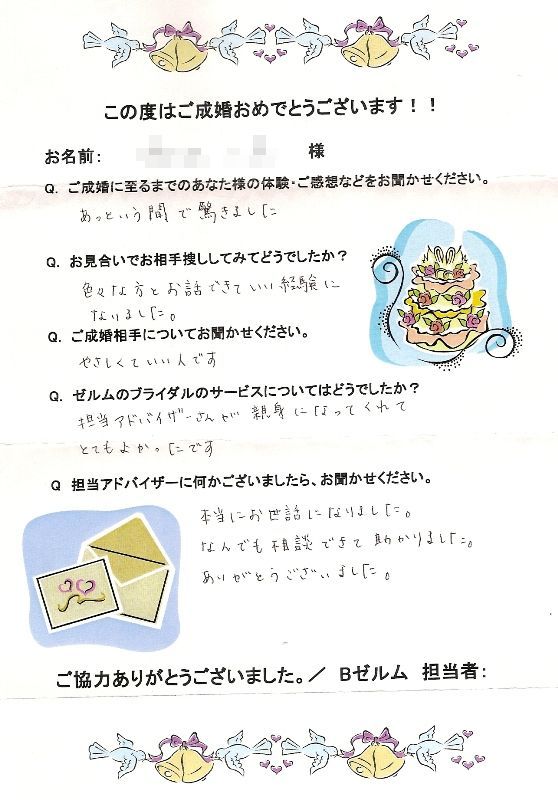 この度はご成婚おめでとうございます！！
お名前： 様
Q. ご成婚に至るまでのあなた様の体験・ご感想などをお聞かせください。
あっという間で驚きました
Q. お見合いでお相手捜ししてみてどうでしたか？
色々な方とお話できていい経験に
なりました。
Q. ご成婚相手についてお聞かせください。
やさしくていい人です
Q. ゼルムのブライダルのサービスについてはどうでしたか？
担当アドバイザーさんが親身になってくれて
とてもよかったです
Q 担当アドバイザーに何かございましたら、お聞かせください。
本当にお世話になりました。
なんでも相談できて助かりました。
ありがとうございました。
ご協力ありがとうございました。／ Bゼルム 担当者：